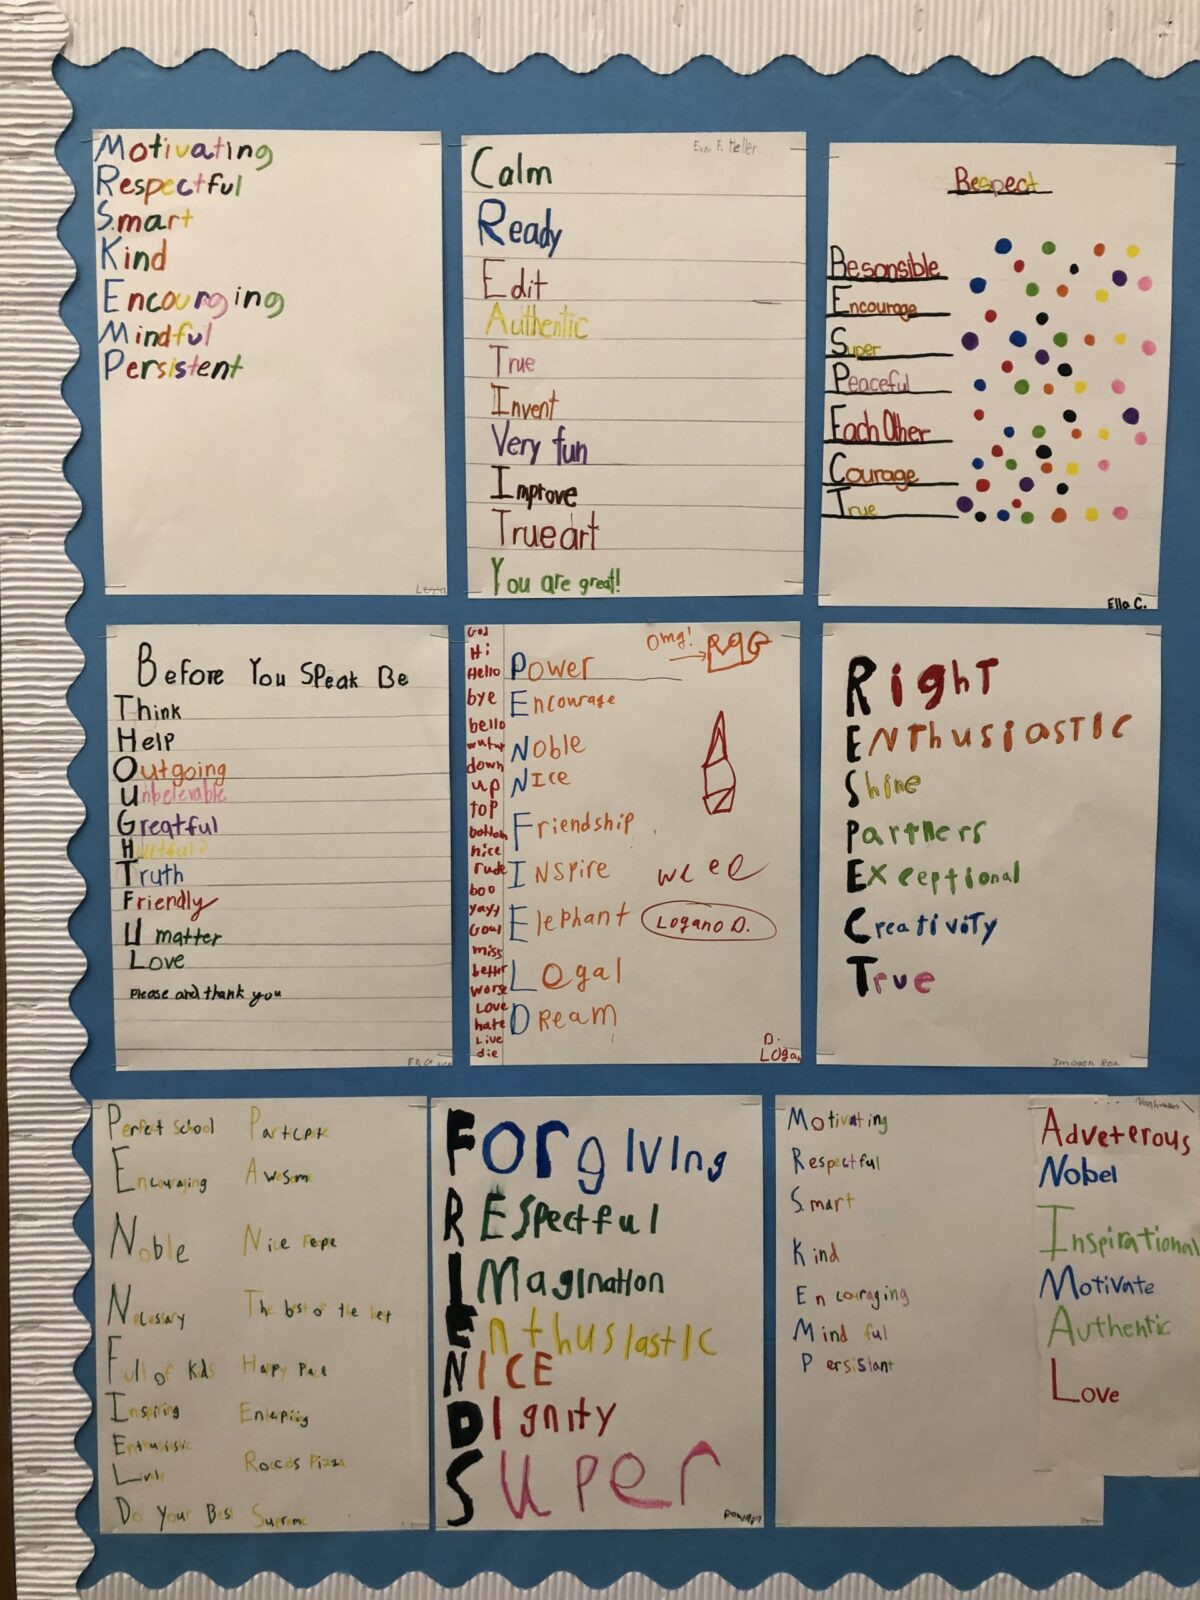 Motivating
Respectful
Smart
Kind
Encourging
Mindful
Persistent
Calm
Ready
Edit
Authentic
True
Invent
Very fun
Improve
True art
You are great!
Respect
Resonsible
Encourage
Super
Peaceful
Each Other
Courage
True
Ella C.
Before You Speak Be
Think
Help
Outgoing
Unbelevable
Greatful
Hurtful?
Truth
Friendly
U matter
Love
Please and thank you
God
Hi
Hello
bye
bello
down
up
top
bottom
nice
rude
boo
yayy
Goal
miss
better
worse
Love
hate
Live
die
Omg!
Power
Encourage
Noble
Nice
Friendship
Inspire
Elephant
Logal
Dream
Logano D.
D.
Logan
Right
Enthusiastic
Shine
Partners
Exceptional
Creativity
True
Imogen Rea
Perfect School
Encouraging
Noble
Necessary
Full of kids
Inspiring
Enthusiastic
Lively
Do Your Best
Particpate
Awesome
Nice
The best of the best
Happy
Roccos Pizza
Supreme
Forgiving
Respectful
Imagination
Enthusiastic
Nice
Dignity
Super
Motivating
Respectful
Smart
Kind
Encouraging
Mindful
Persistant
Adveterous
Nobel
Inspirational
Motivate
Authentic
Love